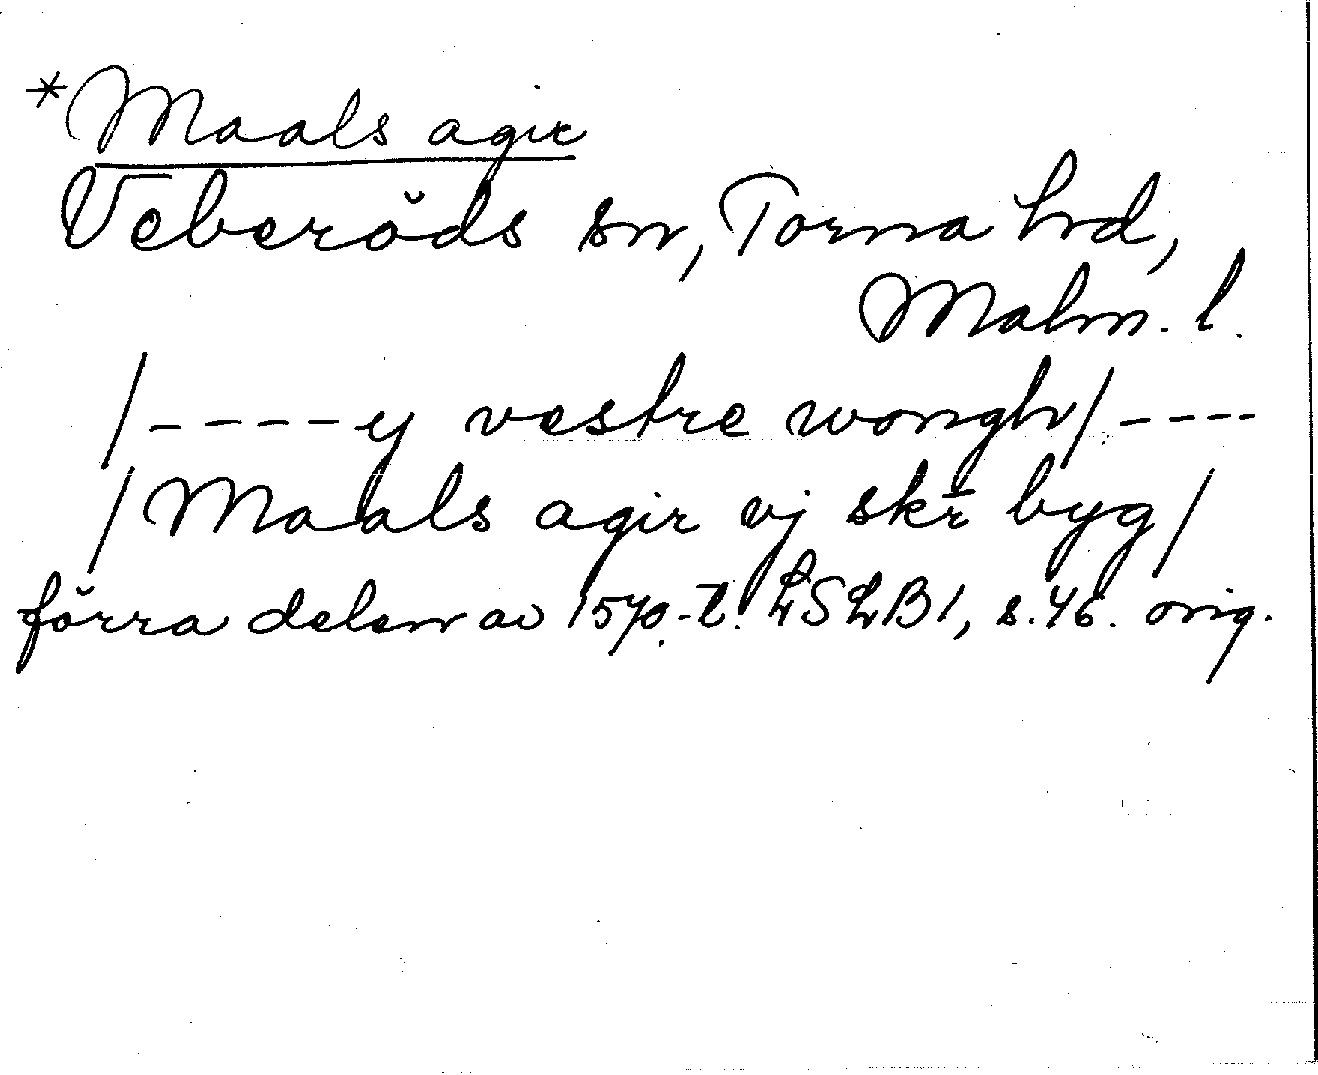 *Maals agir
Veberöds sn, Torna hrd,
Malm. l.
/ - - - - y vestre wongh / - - - -
/ Maals agir vj skr̄ byg /
förra delen av 1570.-t. LSLB1, s. 46. orig.